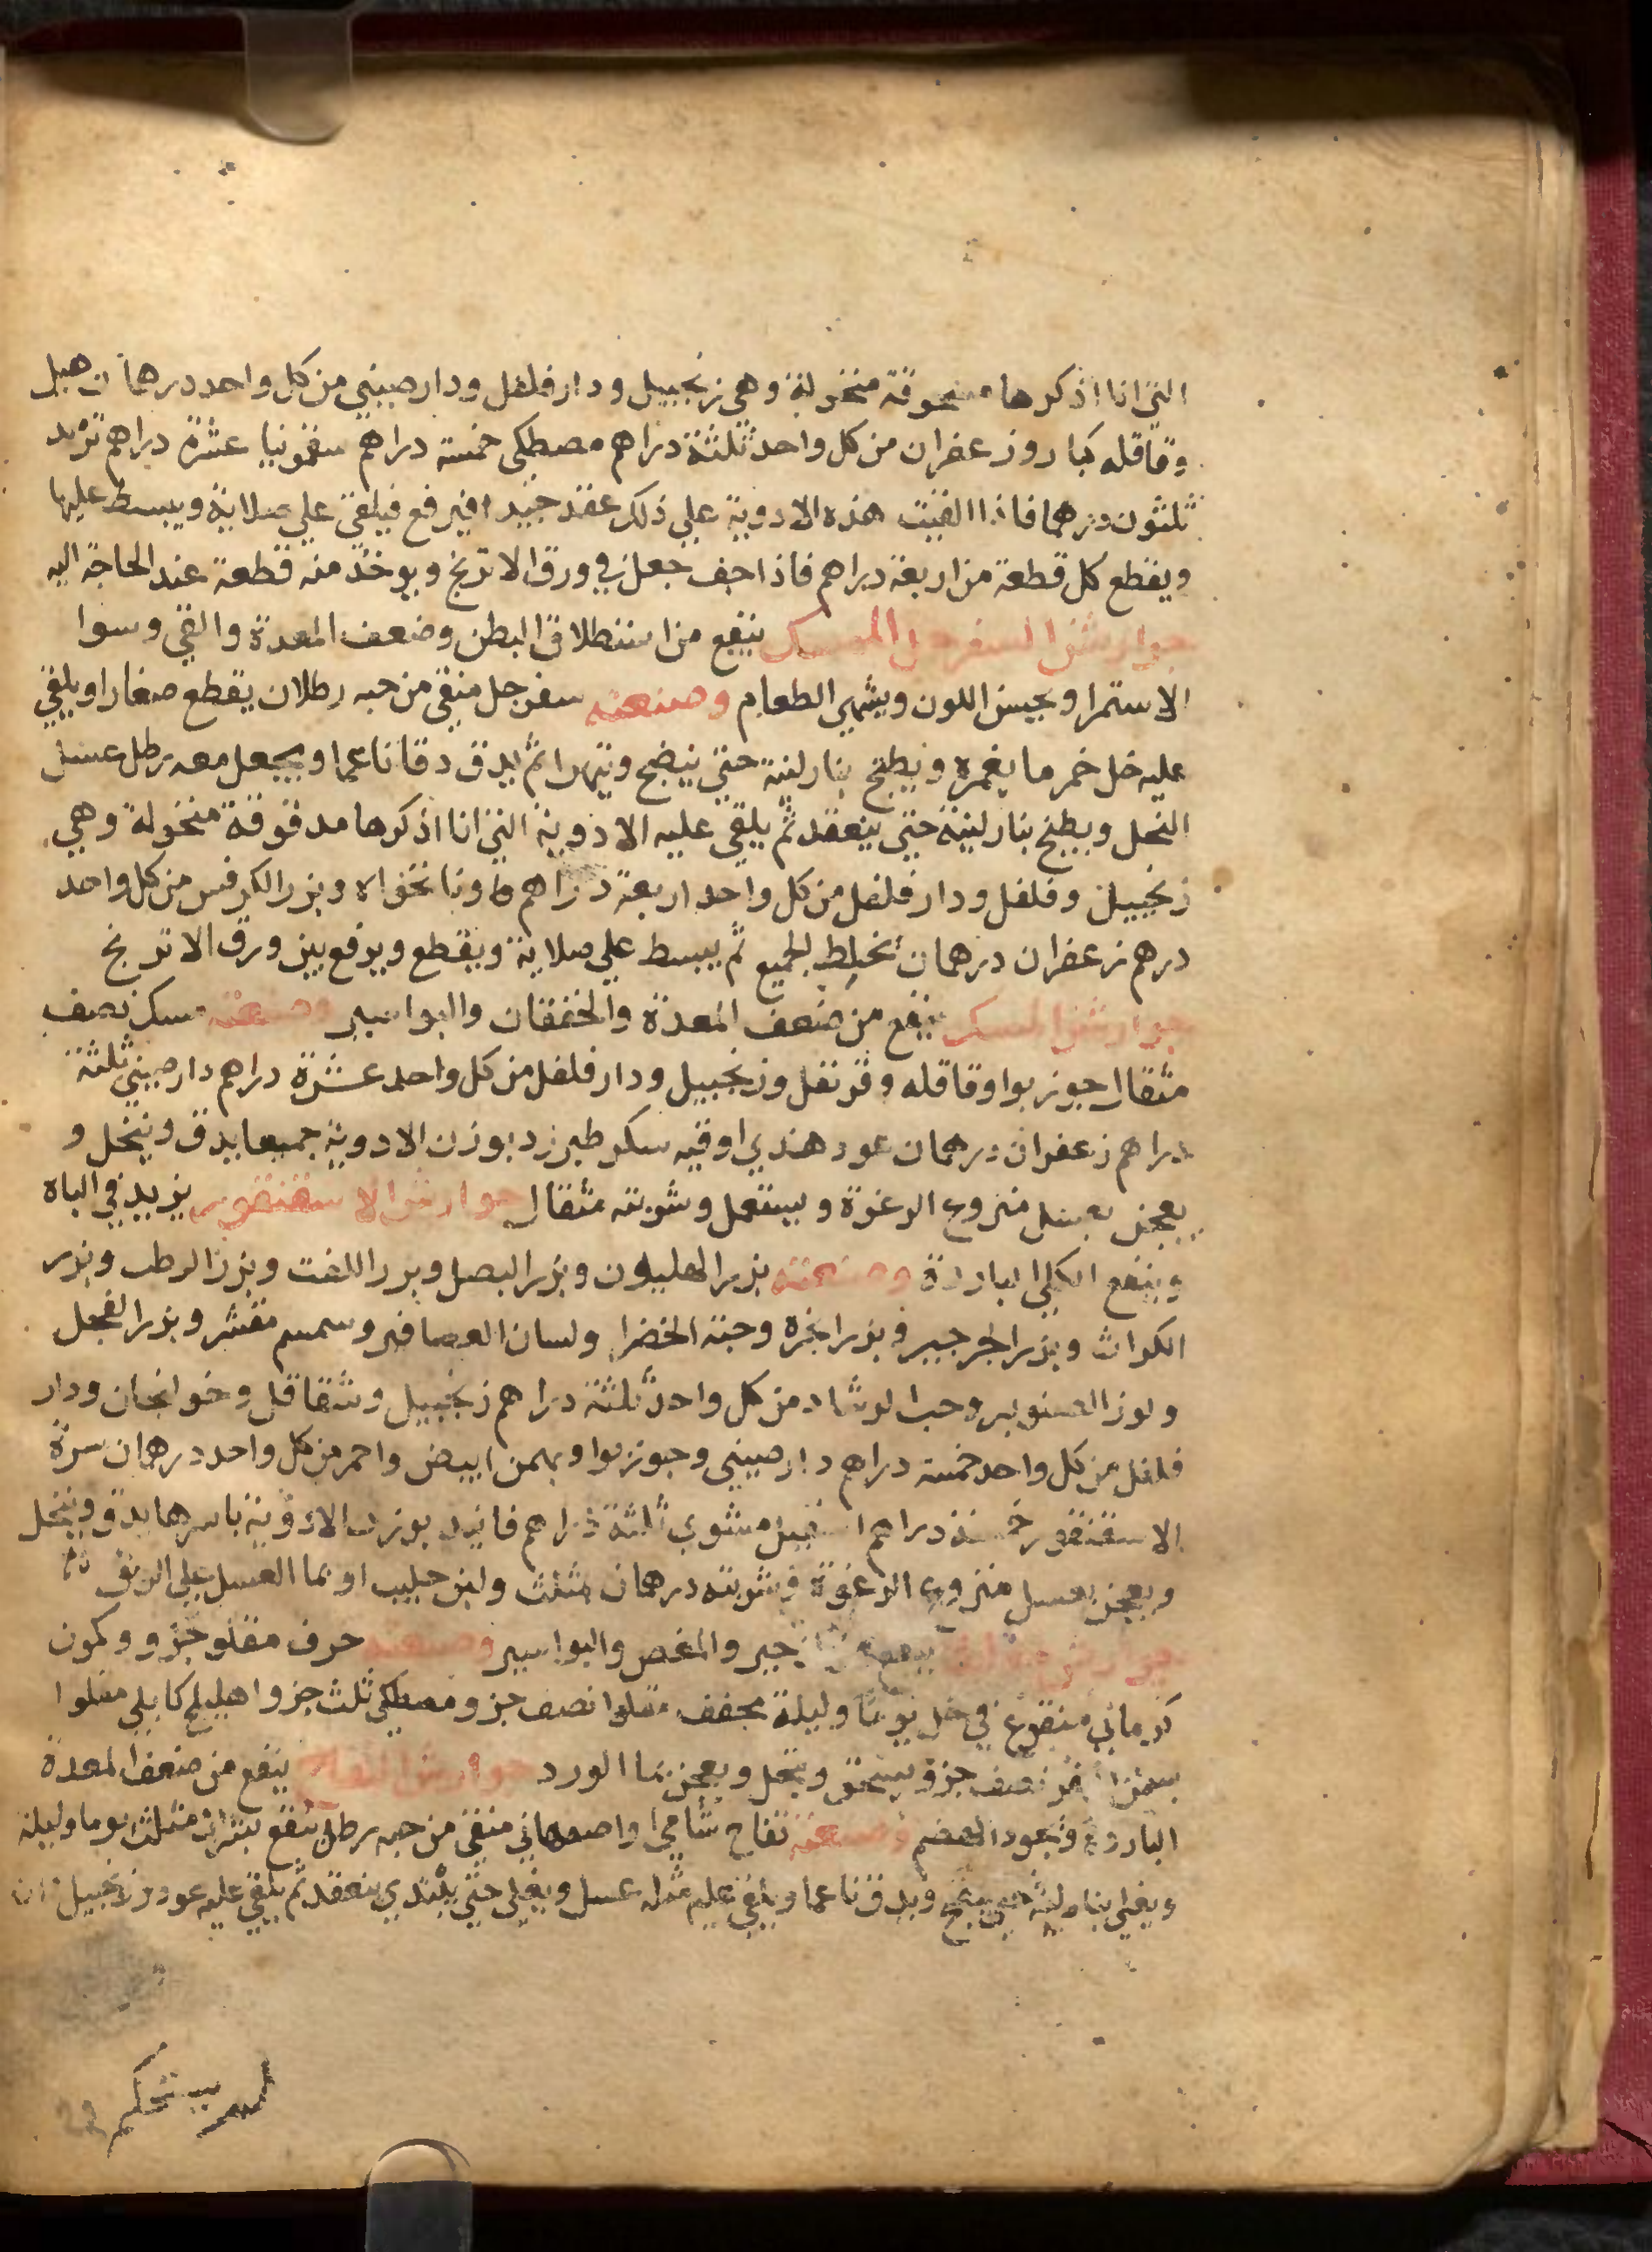 التي انا اذكرها مسحوقة منخولة وهي زنجبيل ودار فلفل ودار صيني من كل واحد درهمان هيل
وقاقله كبار وزعفران من كل واحد ثلثة دراهم مصطكى خمسة دراهم سقمونيا عشرة دراهم تربد
ثلثون درهما فاذا القيت هذه الادوية علي ذلك عقد جيدا فيرفع فيلقي علي صلاية ويبسط عليها
ويقطع كل قطعة من اربعة دراهم فاذا جف جعل في ورق الاترنج ويوخذ منه قطعة عند الحاجة اليه
جوارشن السفرجل الممسك ينفع من استطلاق البطن وضعف المعدة والقي وسوا
الاستمرا ويحسن اللون ويشهي الطعام وصنعته سفرجل منقي من حبه رطلان يقطع صغارا ويلقي
عليه خل خمر ما يغمره ويطبخ بنار لينة حتي ينضج ويتهرا ثم يدق دقا ناعما ويجعل معه رطل عسل
النحل ويطبخ بنار لينة حتي ينعقد ثم يلقي عليه الادوية التي انا اذكرها مدقوقة منخولة وهي
زنجبيل وفلفل ودار فلفل من كل واحد اربعة دراهم ونانخواه وبزر الكرفس من كل واحد
درهم زعفران درهمان تخلط الجميع ثم يبسط علي صلاية ويقطع ويرفع بين ورق الاترنج
جوارشن المسك ينفع من ضعف المعدة والخفقان والبواسير وصنعته مسك نصف
مثقال جوز بوا وقاقله وقرنفل وزنجبيل ودار فلفل من كل واحد عشرة دراهم دار صيني ثلثة
دراهم زعفران درهمان عود هندي اوقيه سكر طبرزد بوزن الادوية جميعا يدق وينخل و
يعجن بعسل منزوع الرغوة ويستعمل وشربته مثقال جوارشن الاسقنقور يزيد في الباه
وينفع الكلي الباردة وصنعته بزر الهليون وبزر البصل وبزر اللفت وبزر الرطب وبزر
الكراث وبزر الجرجير وبزر انجره وحبة الخضرا ولسان العصافير وسمسم مقشر وبزر الفجل
ولوز الصنوبر وحب الرشاد من كل واحد ثلثة دراهم زنجبيل وشقاقل وخولنجان ودار
فلفل من كل واحد خمسة دراهم دار صيني وجوز بوا وبهمن ابيض واحمر من كل واحد درهمان سرة
الاسقنقور خمسة دراهم اسقيل مشوي ثلثة دراهم فانيد بوزن الادوية باسرها يدق وينخل
ويعجن بعسل منزوع الرغوة وشربته درهمان بمثلث ولبن حليب او بما العسل علي الريق
والمغص والبواسير وصنعته حرف مقلو جزو وكمون
كرماني منقوع في خل يوما وليلة مجفف مقلوا نصف جزو مصطكي ثلث جزو اهليلج كابلي مقلوا
بسمن نصف جزو يسحق وينخل ويعجن بما الورد جوارشن التفاح ينفع من ضعف المعدة
الباردة ويجود الهضم وصنعته تفاح شامي او اصفهاني منقي من حبه رطل ينقع بشراب مثلث يوما وليلة
ويغلي بنار لينة حتي ينضج ويدق ناعما ويلقي عليه مثله عسل ويغلي حتي يبتدي ينعقد ثم يلقي عليه عود وزنجبيل